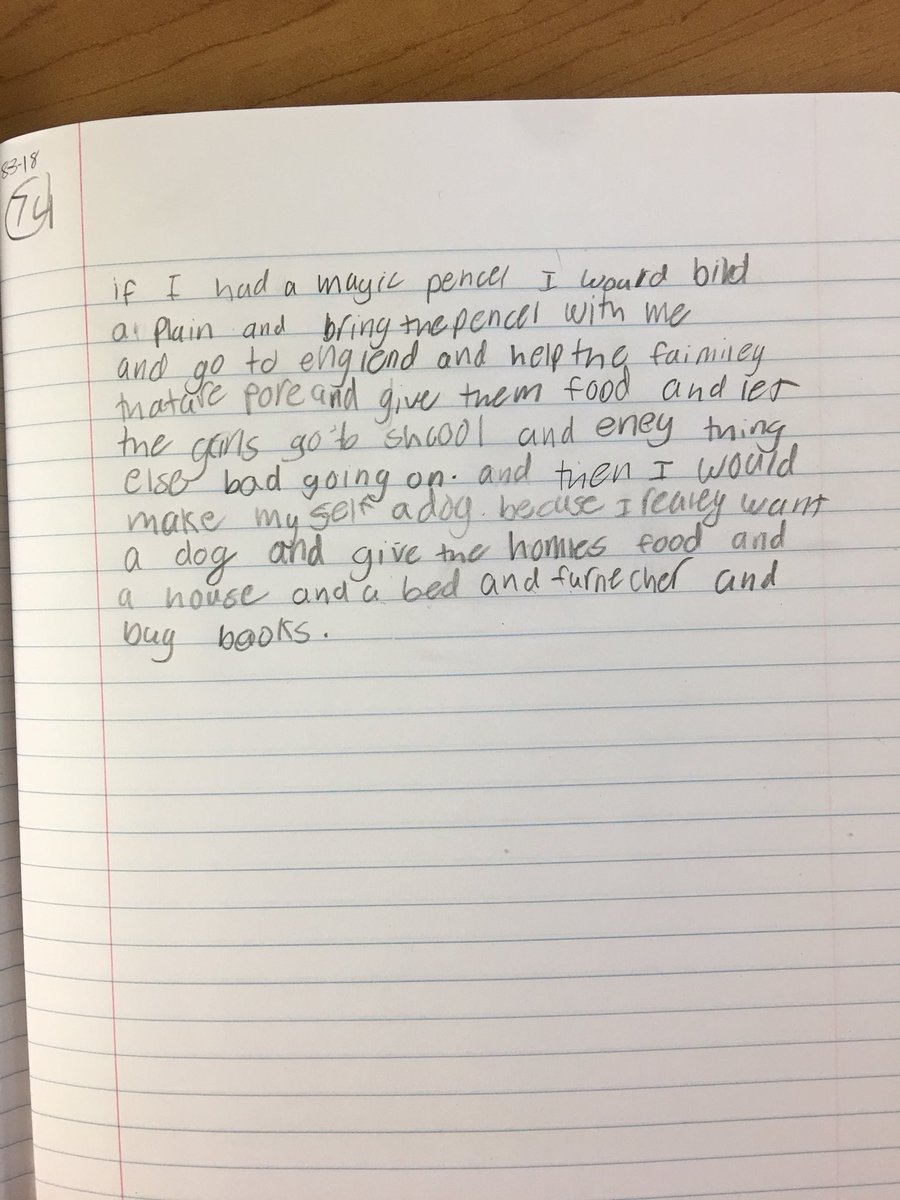 83-18
74
if I had a magic pencel I would bild
a plain and bring the pencel with me
and go to englend and help the faimiley
that are pore and give them food and let
the girls go to shcool and eney thing
else bad going on. and then I would
make my self a dog. becuse I realey want
a dog and give the homles food and
a house and a bed and furnecher and
bug books.